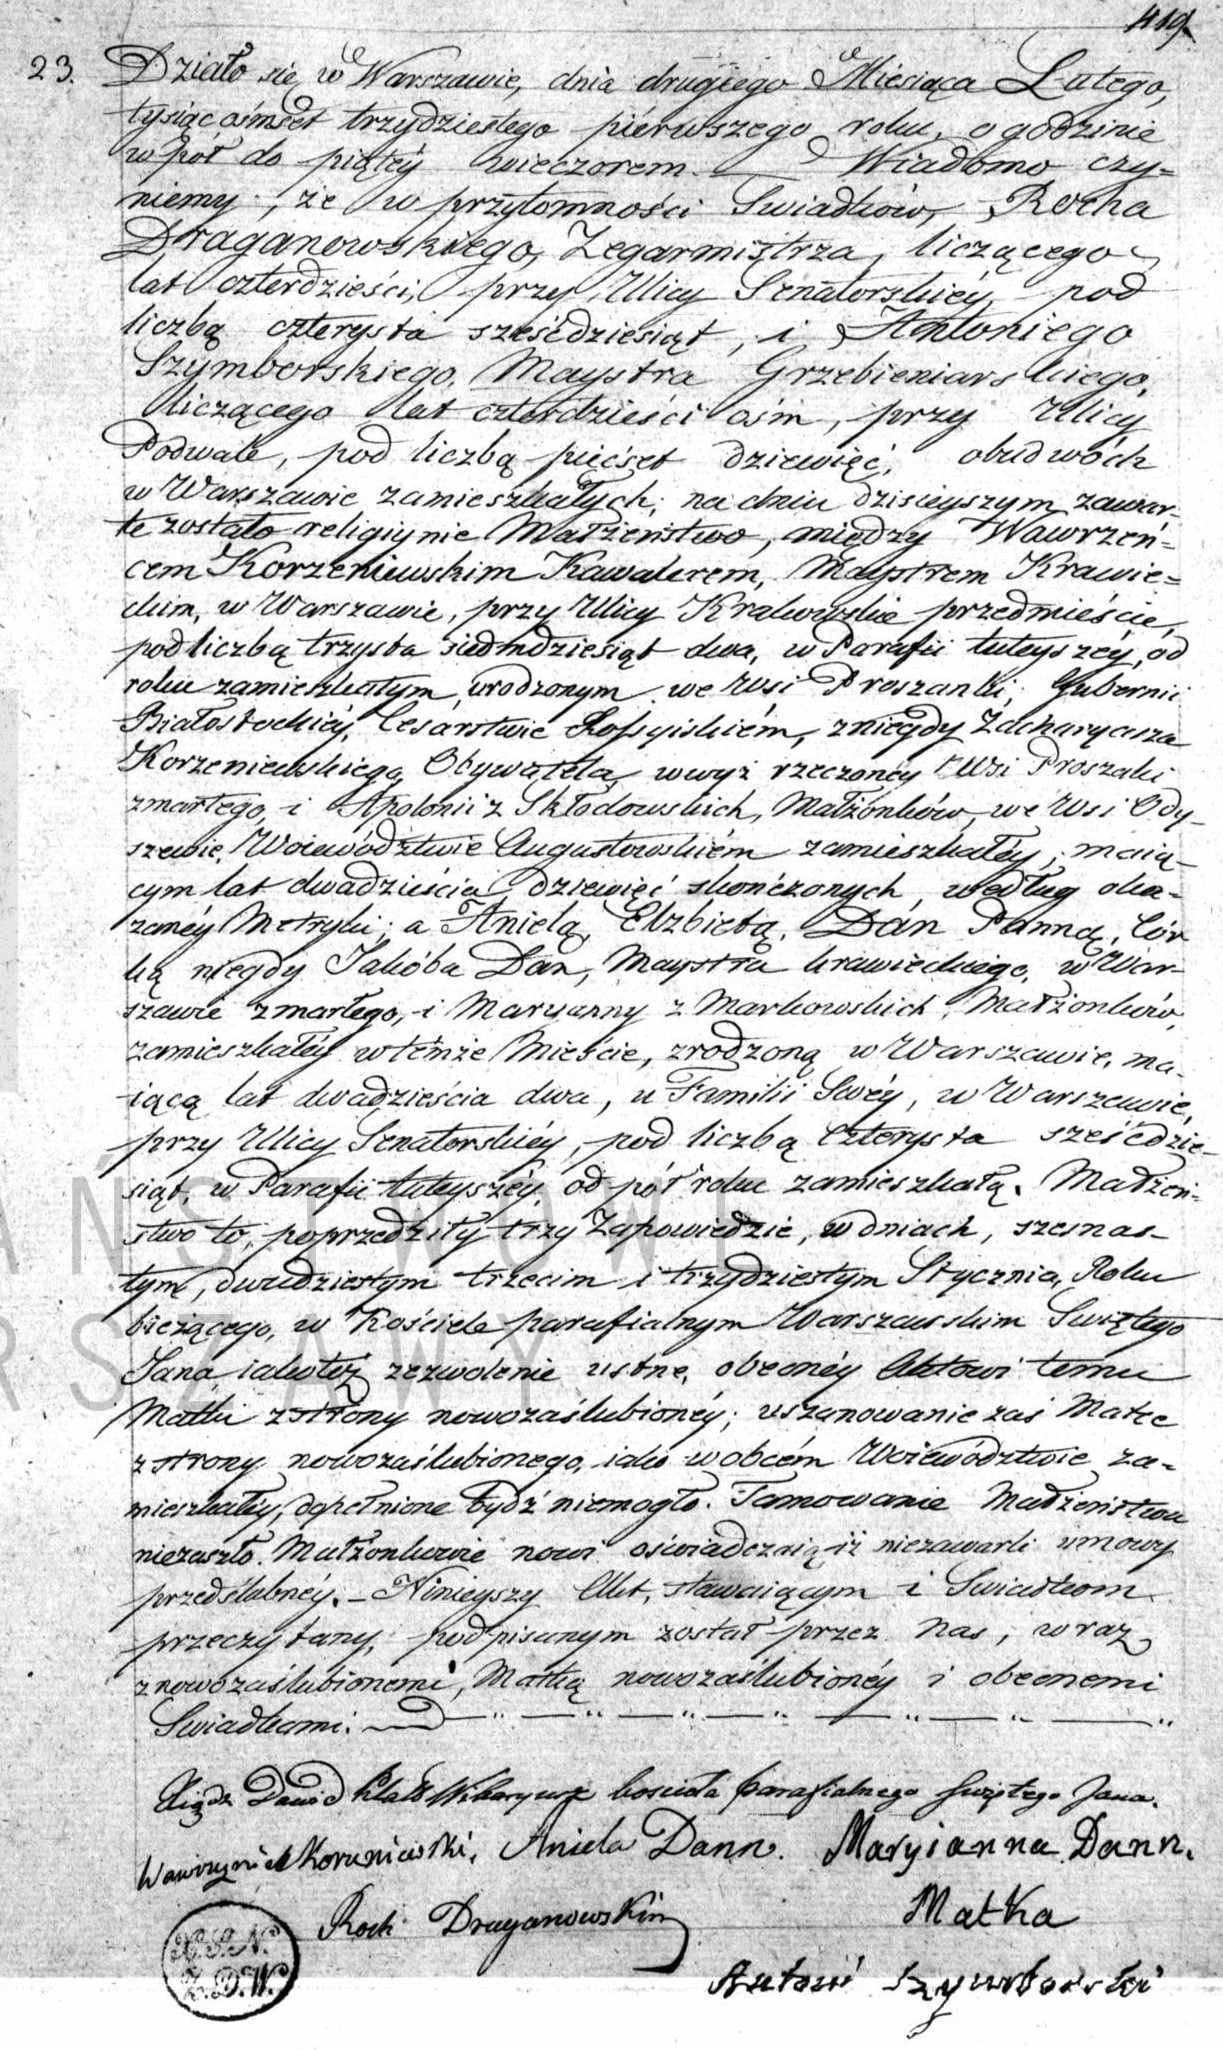 419.
23. Działo się w Warszawie, dnia drugiego Miesiąca Lutego,
tysiąc ośmset trzydziestego piérwszego roku, o godzinie
wpół do piątéy wieczorem. — Wiadomo czy-
niemy, że w przytomności Swiadków, Rocha
Draganowskiego, Zegarmistrza, liczącego
lat czterdzieści, przy Ulicy Senatorskiéy, pod
liczbą czterysta sześćdziesiąt, i Antoniego
Szymborskiego, Maystra Grzebieniarskiego,
liczącego lat czterdzieści ośm, przy Ulicy
Podwale, pod liczbą pięćset dziewięć, obudwóch
w Warszawie zamieszkałych; na dniu dzisieyszym zawar-
te zostało religiynie Małżeństwo, między Wawrzeń-
cem Korzeniewskim Kawalerem, Maystrem Krawie-
ckim, w Warszawie, przy Ulicy Krakowskie przedmieście,
pod liczbą trzysta siedmdziesiąt dwa, w Parafii tuteyszéy, od
roku zamieszkałym, urodzonym we Wsi Proszanki, Gubernii
Białostockiéy, Cesarstwie Rossyiskiém, z niegdy Zacharyasza
Korzeniewskiego, Obywatela, w wyż rzeczonéy Wsi Proszaki
zmarłego, i Apolonii z Skłodowskich, Małżonków, we Wsi Ody-
szewie, Woiewództwie Augustowskiém zamieszkałéy, maią-
cym lat dwadzieścia dziewięć skończonych, według oka-
zanéy Metryki; a Anielą, Elżbietą, Dan Panną, Cór
ką niegdy Jakóba Dan, Maystra krawieckiego, w War-
szawie zmarłego, i Maryanny z Markowskich, Małżonków,
zamieszkałéy w témże Mieście, zrodzoną w Warszawie, ma-
iącą lat dwadzieścia dwa, u Familii Swéy, w Warszawie,
przy Ulicy Senatorskiéy, pod liczbą czterysta sześćdzie-
siąt, w Parafii tuteyszéy od pół roku zamieszkałą. Małżeń-
stwo to, poprzedziły trzy Zapowiedzie, w dniach, szesnas-
tym, dwudziestym trzecim i trzydziestym Stycznia, Roku
bieżącego, w Kościele parafialnym Warszawskim Swiętego
Jana, iakotéż zezwolenie ustne, obecnéy Aktowi temu
Matki z strony nowozaślubionéy; uszanowanie zaś Matce
z strony nowozaślubionego, iako w obcém Woiewództwie za-
mieszkałéy, dopełnione bydź niemogło. Tamowanie Małżeństwa
niezaszło. Małżonkowie nowi oświadczaią iż niezawarli umowy
przedślubnéy. – Ninieyszy Akt, stawaiącym i Swiadkom
przeczytany, podpisanym został przez Nas, wraz
z nowozaślubionemi, Matką nowozaślubionéy i obecnemi
Swiadkami.
Xiądz Dawid Wikaryusz kościoła parafialnego Swiętego Jana.
Wawrzyniec Korzeniewski, Aniela Dann. Maryianna Dann.
Matka
Roch Draganowski
Antoni Szymborski
X.S.N.
Z.D.W.